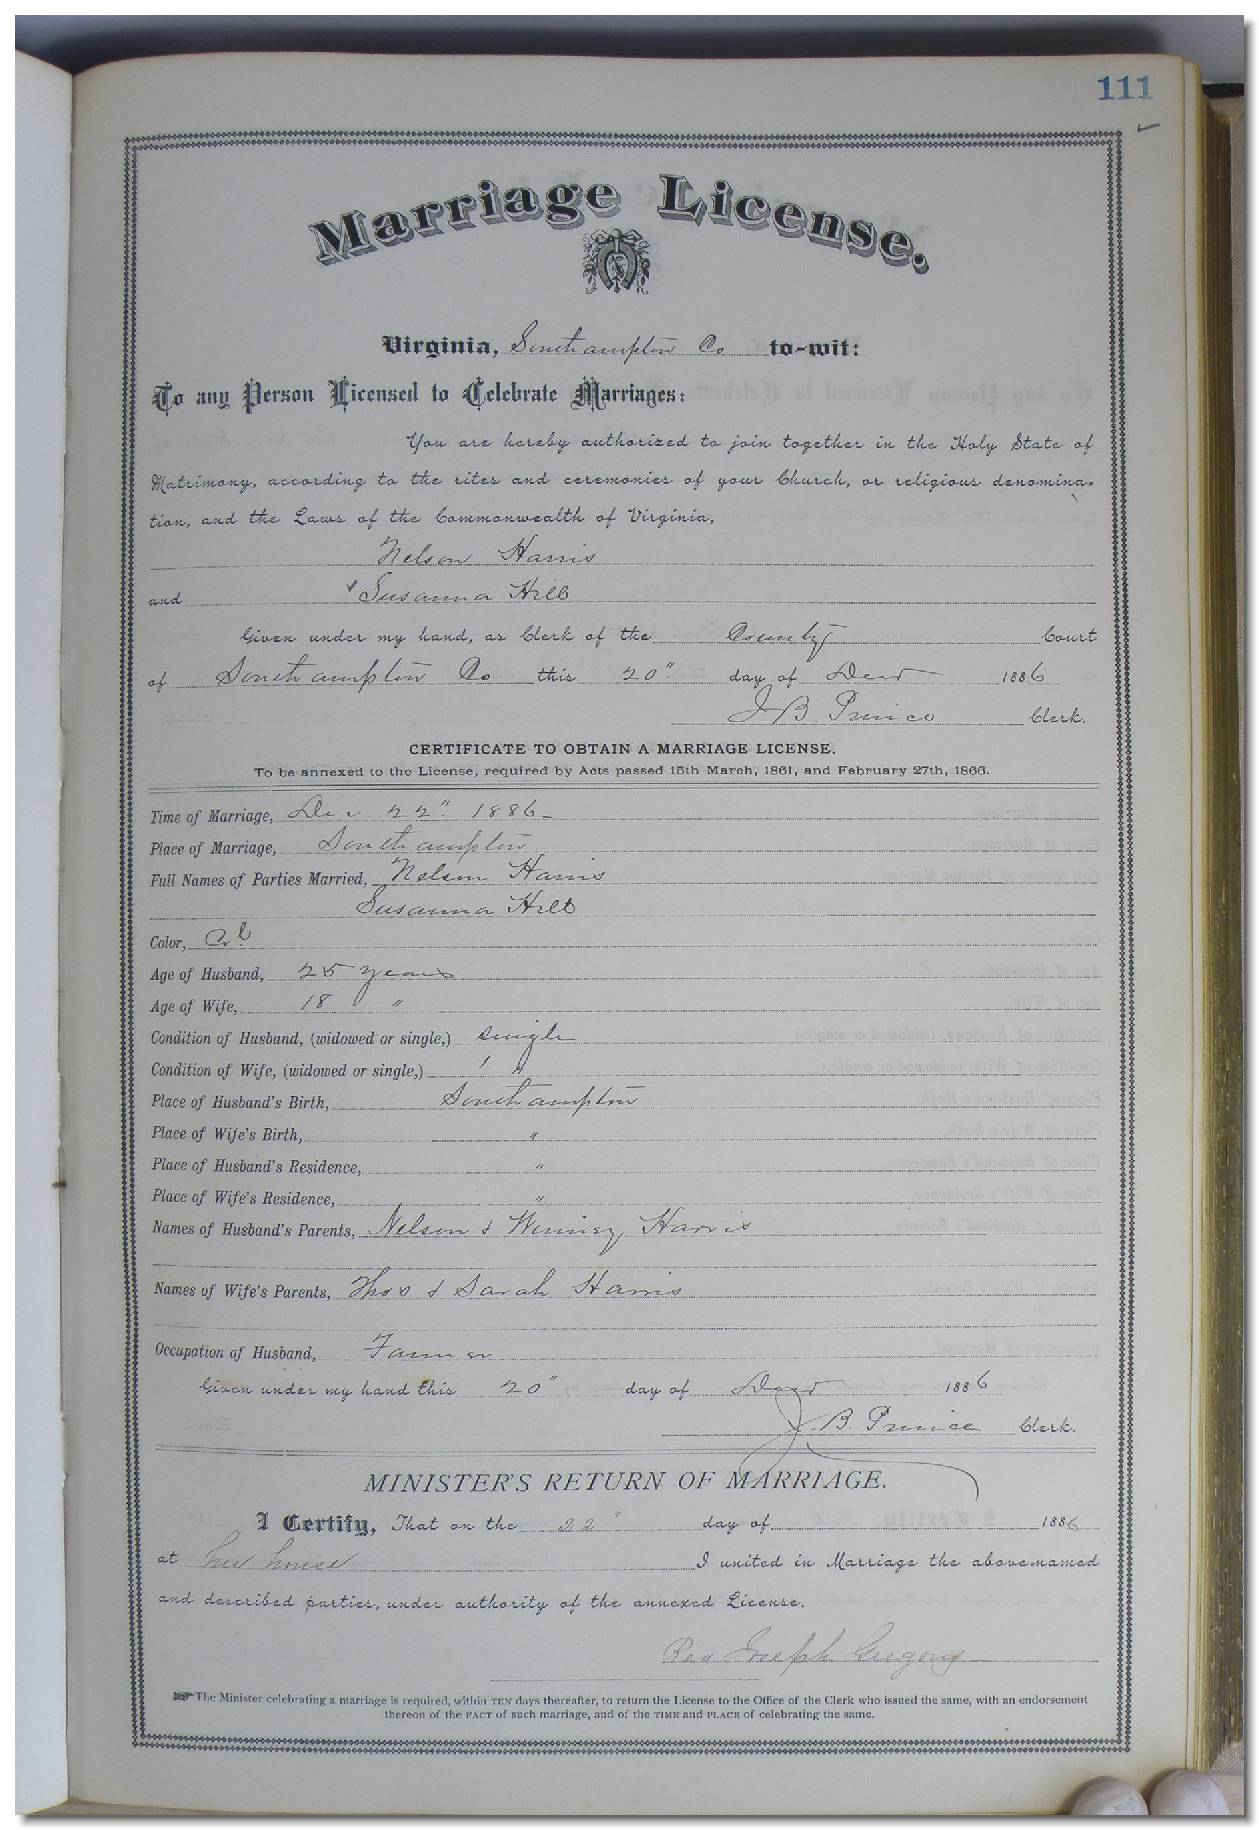 111
Marriage License.
Virginia, Southampton Co to-wit:
To any Person Licensed to Celebrate Marriages:
You are hereby authorized to join together in the Holy State of
Matrimony, according to the rites and ceremonies of your Church, or religious denomina-
tion, and the Laws of the Commonwealth of Virginia,
Nelson Harris
and Susanna Hill
Given under my hand, as Clerk of the County Court
of Southampton Co this 20" day of Decr 1886
J. B. Prince Clerk.
CERTIFICATE TO OBTAIN A MARRIAGE LICENSE.
To be annexed to the License, required by Acts passed 15th March, 1861, and February 27th, 1866.
Time of Marriage, Dec 22" 1886
Place of Marriage, Southampton
Full Names of Parties Married, Nelson Harris
Susanna Hill
Color, Col
Age of Husband, 25 years
Age of Wife, 18 "
Condition of Husband, (widowed or single,) single
Condition of Wife, (widowed or single,) "
Place of Husband's Birth, Southampton
Place of Wife's Birth, "
Place of Husband's Residence, "
Place of Wife's Residence, "
Names of Husband's Parents, Nelson & Winney Harris
Names of Wife's Parents, Thos & Sarah Harris
Occupation of Husband, Farmer
Given under my hand this 20" day of Decr 1886
J. B. Prince Clerk.
MINISTER'S RETURN OF MARRIAGE.
I Certify, That on the 22" day of 1886
at her house I united in Marriage the above-named
and described parties, under authority of the annexed License.
Rev Joseph Gregory
The Minister celebrating a marriage is required, within TEN days thereafter, to return the License to the Office of the Clerk who issued the same, with an endorsement
thereon of the FACT of such marriage, and of the TIME and PLACE of celebrating the same.